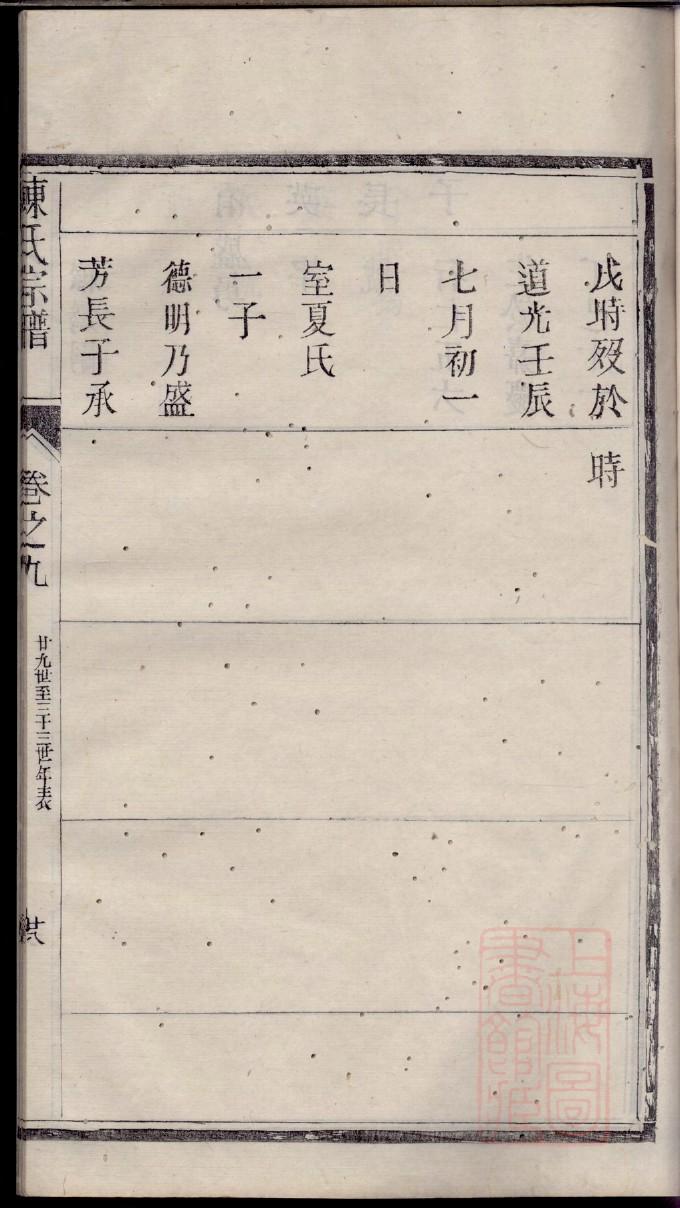 戌時歿於
道光壬辰
七月初一
日
室夏氏
一子
德明乃盛
芳長子承
時
陳氏宗譜
卷之九
廿九世至三十三世年表
上海圖書館藏